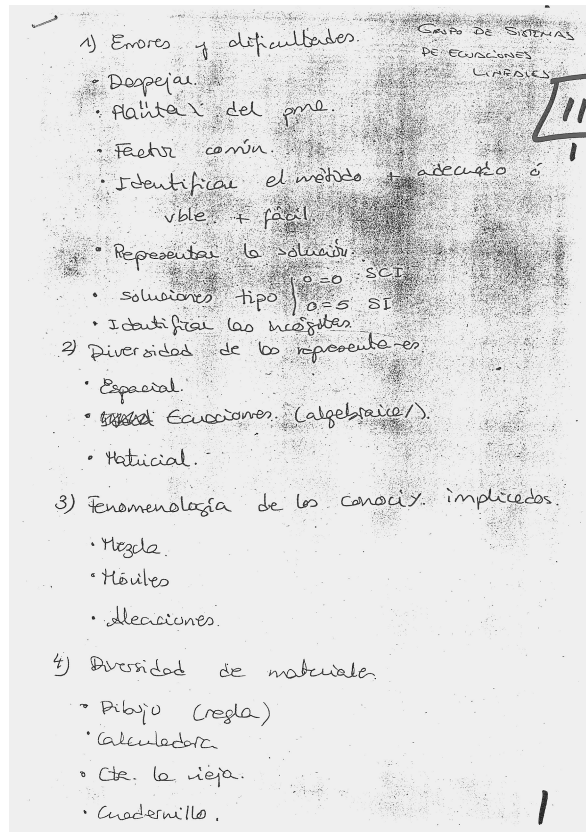 GRUPO DE SISTEMAS
DE ECUACIONES
LINEALES
III
1) Errores y dificultades.
• Despejar.
• del pme.
• Factor común.
• Identificar el método + adecuado ó
vble + fácil.
• Representar la solución.
• soluciones tipo 0=0 SCI
0=5 SI
• Identificar las incógnitas
2) Diversidad de las representa-es.
• Espacial.
• Ecuaciones. (algebraica/).
• Matricial.
3) Fenomenología de los conoci/. implicados.
• Mezcla.
• Móviles
• Aleaciones.
4) Diversidad de materiales.
• Dibujo (regla)
• Calculadora
• Cta. la vieja.
• Cuadernillo.
1